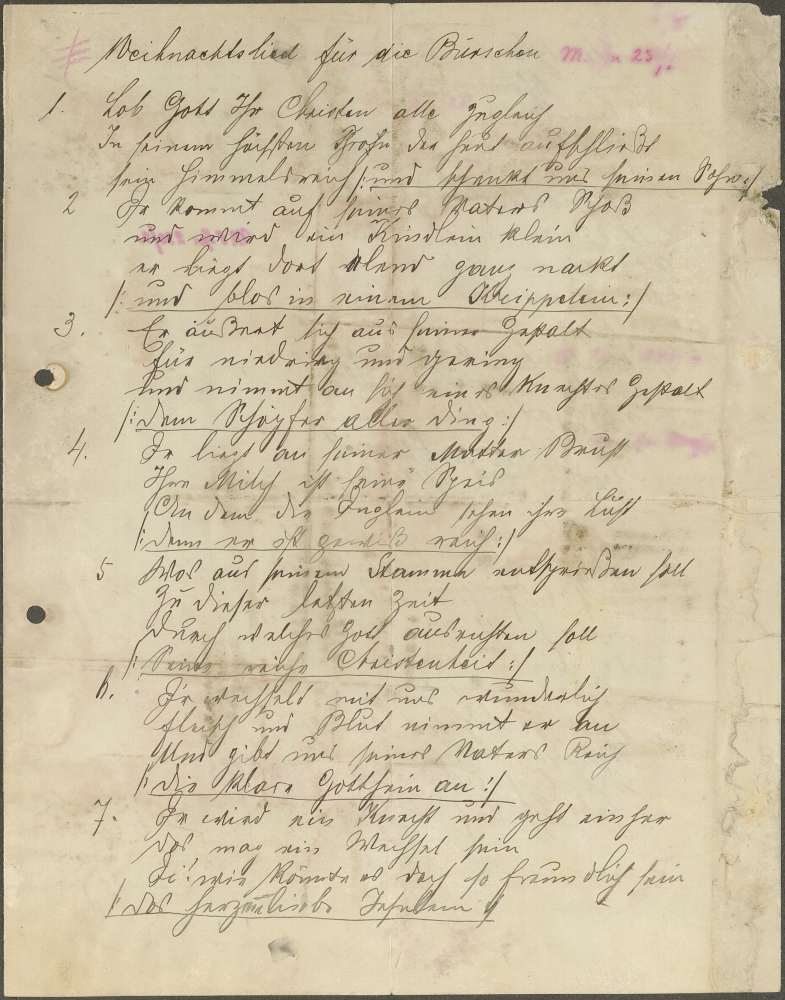 Weihnachtslied für die Burschen M. n 23,.
1. Lob Gott Ihr Christen alle zugleich
In seinem höchsten Trohn der heut aufschließt
sein Himmelsreich /: und schenkt uns seinen Sohn :/
2 Er kommt aus seines Vaters Schoß
und wird ein Kindlein klein
er liegt dort elend ganz nackt
/: und blos in einem Kreippelein :/
3. Er äußert sich aus seiner Gestalt
für niedrig und gering
und nimmt an sich eines Knechtes Gestalt
/: dem Schöpfer aller Ding :/
4. Er liegt an seiner Mutter Brust
Ihre Milch ist seine Speis
An dem die Englein sehen ihre Lust
/: denn er ist gewiß reich :/
5 Wos aus seinem Stamme entsprießen soll
Zu dieser letzten Zeit
Durch welches Gott ausrichten soll
/: Seine reiche Christenheid :/
6. Er wechselt mit uns wunderlich
Fleisch und Blut nimmt er an
Und gibt uns seines Vaters Reich
/: die klare Gottheein an :/
7. Er wird ein Knecht und geht einher
das mag ein Wechsel sein
Ei! wie könnte es doch so freundlich sein
/: das herzliebe Jesulein :/